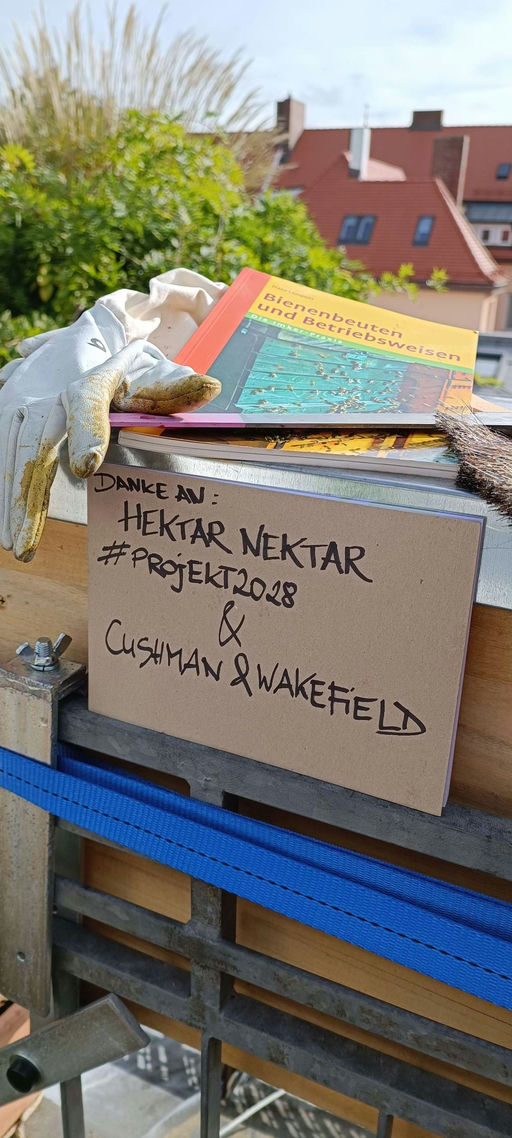 Bienenbeuten
und Betriebsweisen
Die Imkerpraxis
DANKE AN:
HEKTAR NEKTAR
#PROJEKT2028
&
CUSHMAN & WAKEFIELD